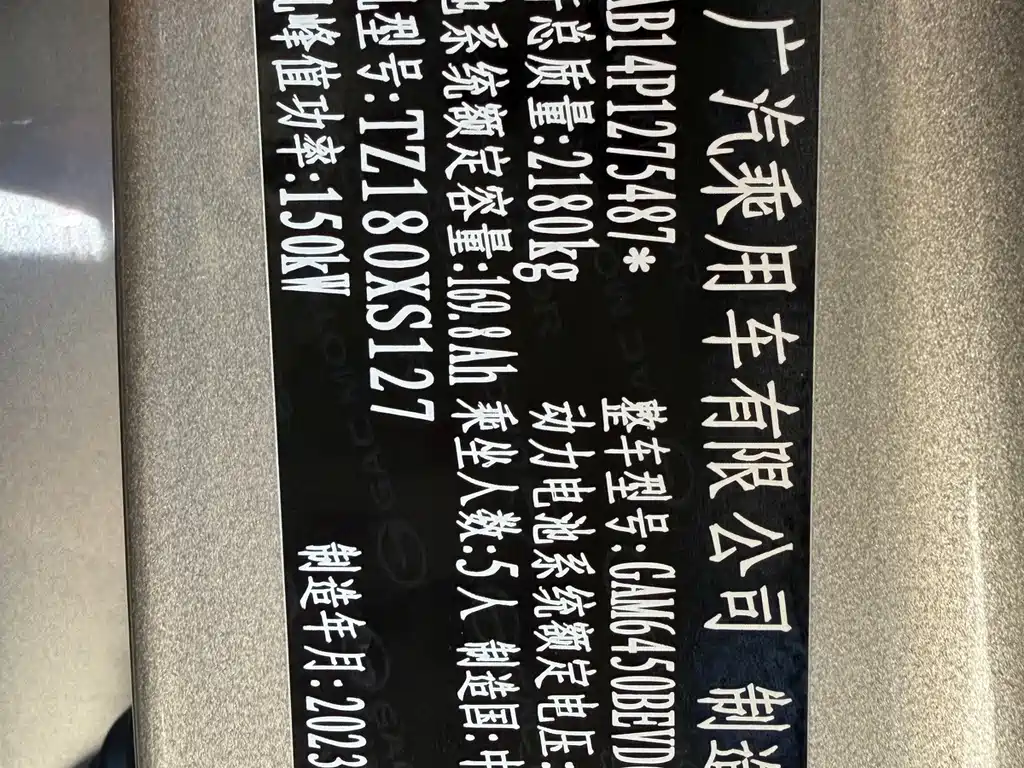 广汽乘用车有限公司 制造
AB14P1275487* 整车型号:GAM6450BEVD
总质量:2180kg 动力电池系统额定电压:
池系统额定容量:169.8Ah 乘坐人数:5人 制造国:中
型号:TZ180XS127
峰值功率:150kW 制造年月:2023